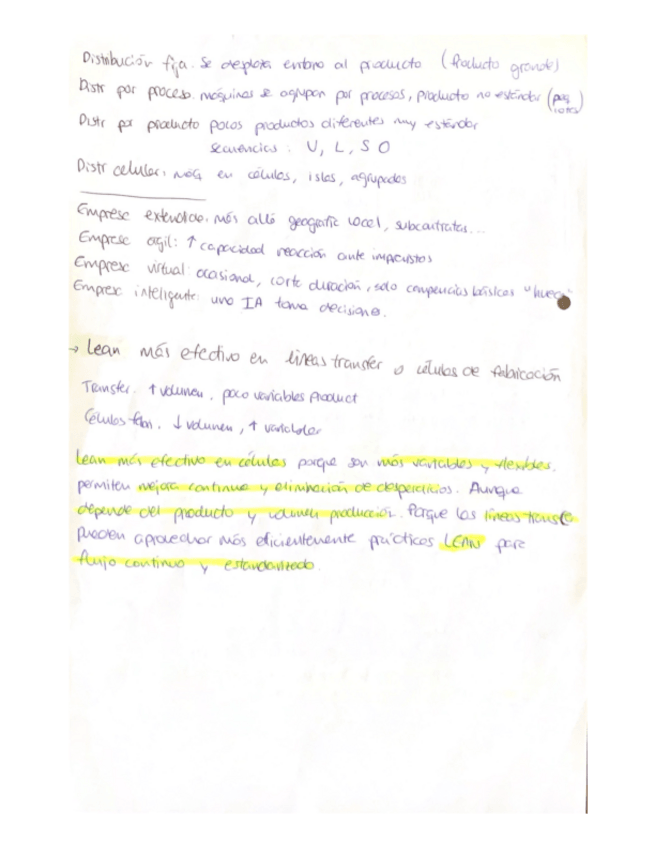 Distribución fija. Se desplaza entorno al producto (Producto grande)
Distr por proceso. máquinas se agrupan por procesos, producto no estándar (peq lotes)
Distr por producto pocos productos diferentes muy estándar
secuencias. U, L, S O
Distr celular. máq en células, islas, agrupados
Empresa extendida. más allá geografic local, subcontratas...
Empresa agil: ↑ capacidad reacción ante imprevistos
Empresa virtual: ocasional, corta duración, solo competencias básicas "hueca"
Empresa inteligente: una IA toma decisiones.
→ Lean más efectivo en líneas transfer o células de fabricación
Transfer. ↑ volumen. poco variables Product
Células fabri. ↓ volumen, ↑
Lean más efectivo en células porque son más variables y flexibles,
permiten mejora continua y eliminación de desperdicios. Aunque
depende del producto y volumen producción. Porque las líneas transfe
pueden aprovechar más eficientemente prácticas LEAN para
flujo continuo y estandarizado.